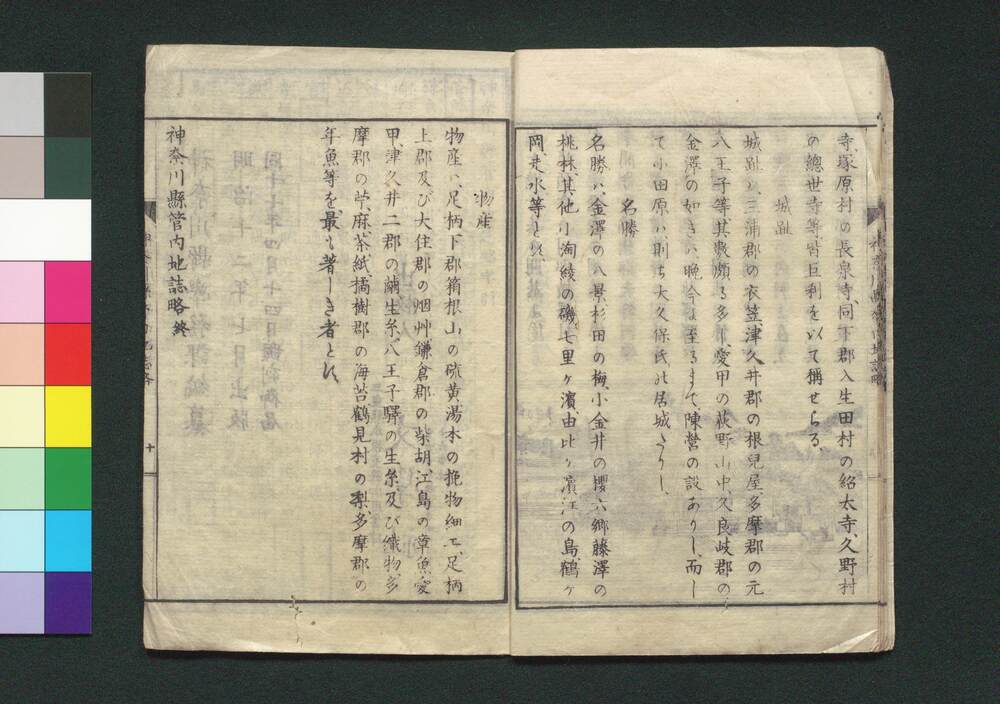 寺、塚原村の長泉寺、同下郡入生田村の紹太寺、久野村
の總世寺等皆巨刹を以て稱せらる
城趾
城趾ハ、三浦郡の衣笠、津久井郡の根兒屋、多摩郡の元
八王子等、其數頗る多し、愛甲の荻野山中、久良岐郡の
金澤の如きハ晩今に至るまて陳營の設ありし、而し
て小田原ハ、則ち大久保氏の居城たりし、
名勝
名勝ハ、金澤の八景、杉田の梅、小金井の櫻、六郷藤澤の
桃林、其他小淘綾の磯、七里ヶ濱、由比ヶ濱、江の島、鶴ヶ
岡、走水等とす
物産
物産ハ、足柄下郡箱根山の硫黄、湯本の挽物細工、足柄
上郡及び大住郡の烟艸、鎌倉郡の柴胡、江島の章魚、愛
甲、津久井二郡の繭生糸、八王子驛の生糸及び織物、多
摩郡の苧、麻、茶、紙、橘樹郡の海苔、鶴見村の梨、多摩郡の
年魚等を最も著しき者とす、
神奈川縣管内地誌略終
十